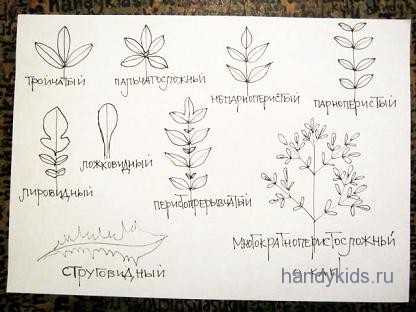 ТРОЙЧАТЫЙ
ПАЛЬЧАТОСЛОЖНЫЙ
НЕПАРНОПЕРИСТЫЙ
ПАРНОПЕРИСТЫЙ
ЛИРОВИДНЫЙ
ЛОЖКОВИДНЫЙ
ПЕРИСТОПРЕРЫВЧАТЫЙ
МНОГОКРАТНОПЕРИСТОСЛОЖНЫЙ
СТРУГОВИДНЫЙ
handykids.ru